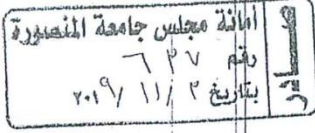 امانة مجلس جامعة المنصورة
رقم ٦٢٧
بتاريخ ٣ / ١١ / ٢٠١٩
صادر